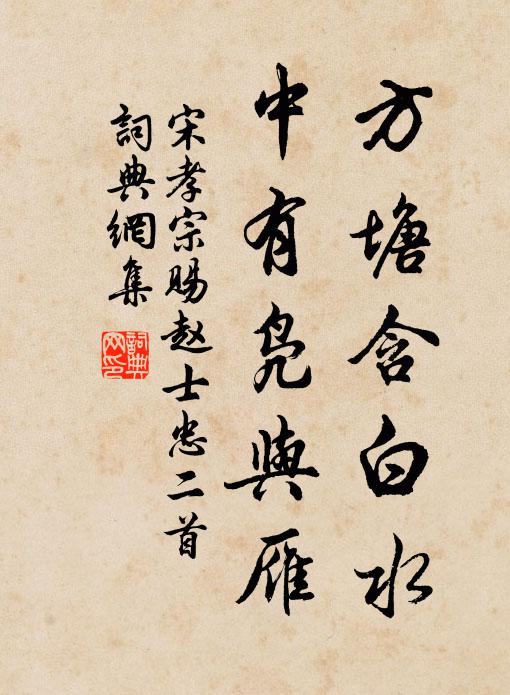 方塘含白水
中有凫與雁
宋孝宗賜赵士忠二首
詞典網集
詞典
网印